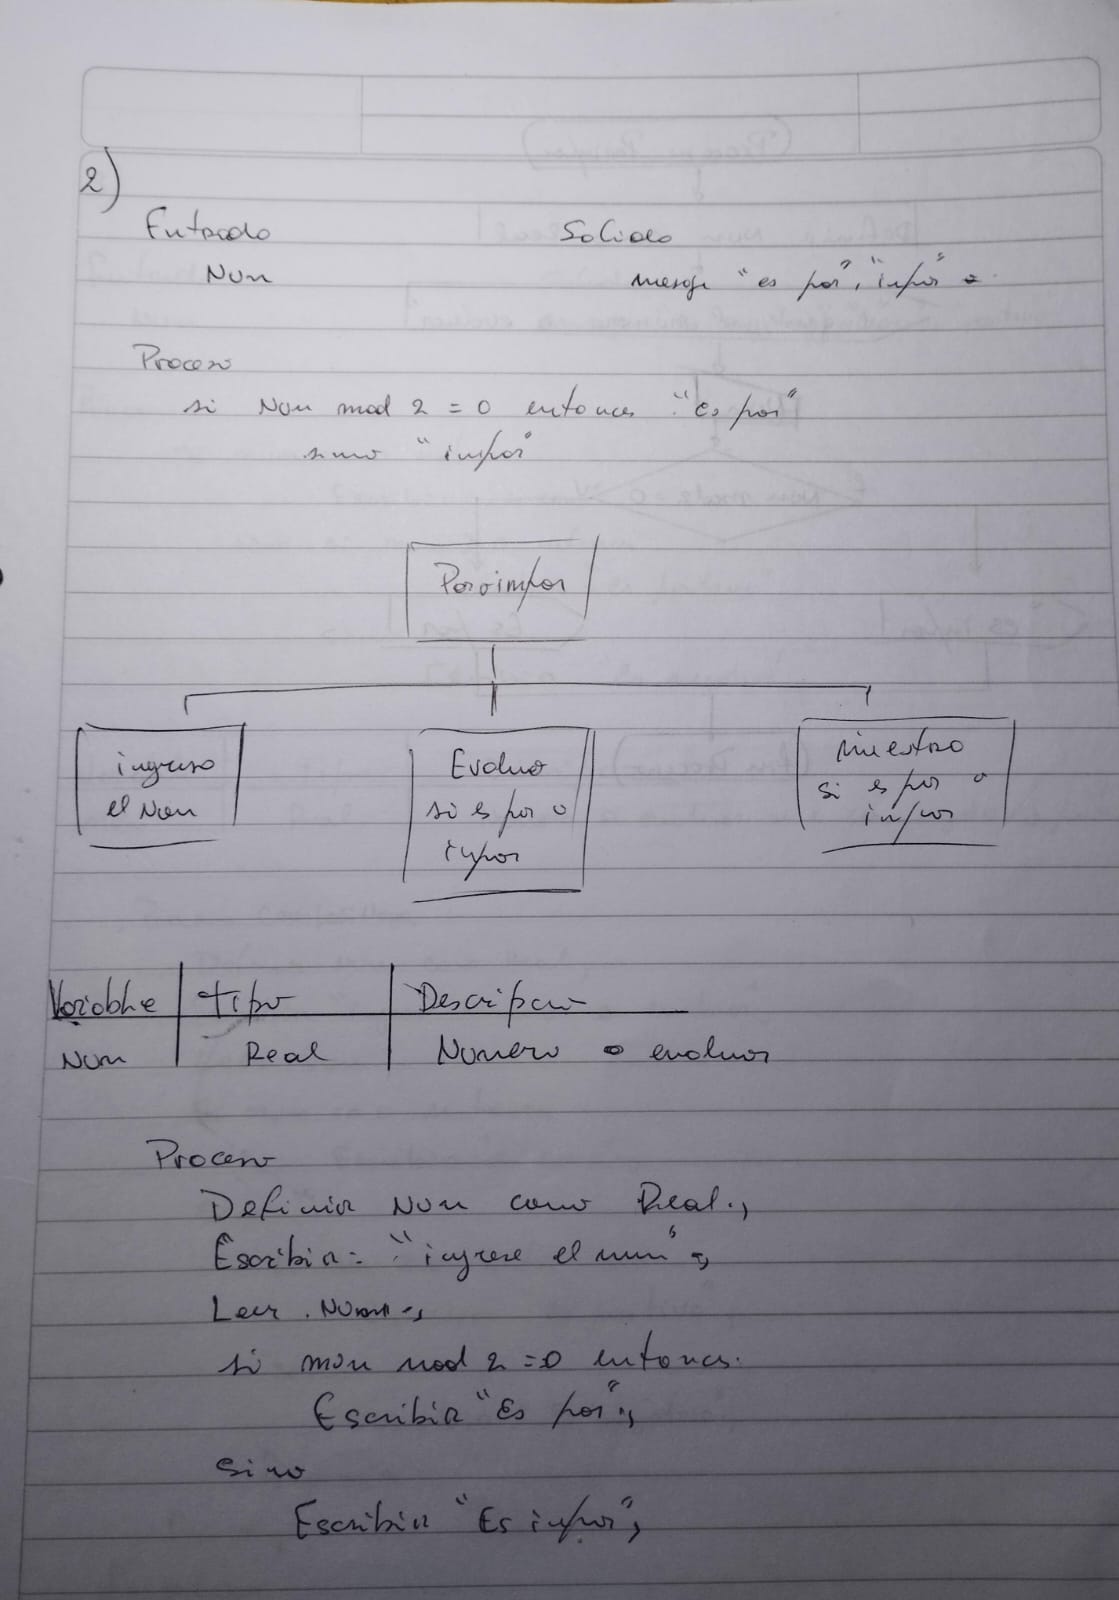 2)
Entrada Salida
Num mensaje "es par", "impar"
Proceso
si Num mod 2 = 0 entonces "Es par"
sino "impar"
Paroimpar
ingreso
el Num
Evaluo
si es par o
impar
muestro
si es par o
impar
Variable Tipo Descripcion
Num Real Numero a evaluar
Proceso
Definir Num como Real;
Escribir: "ingrese el num";
Leer Num;
si mun mod 2 = 0 entonces.
Escribir "Es par";
Sino
Escribir "Es impar";